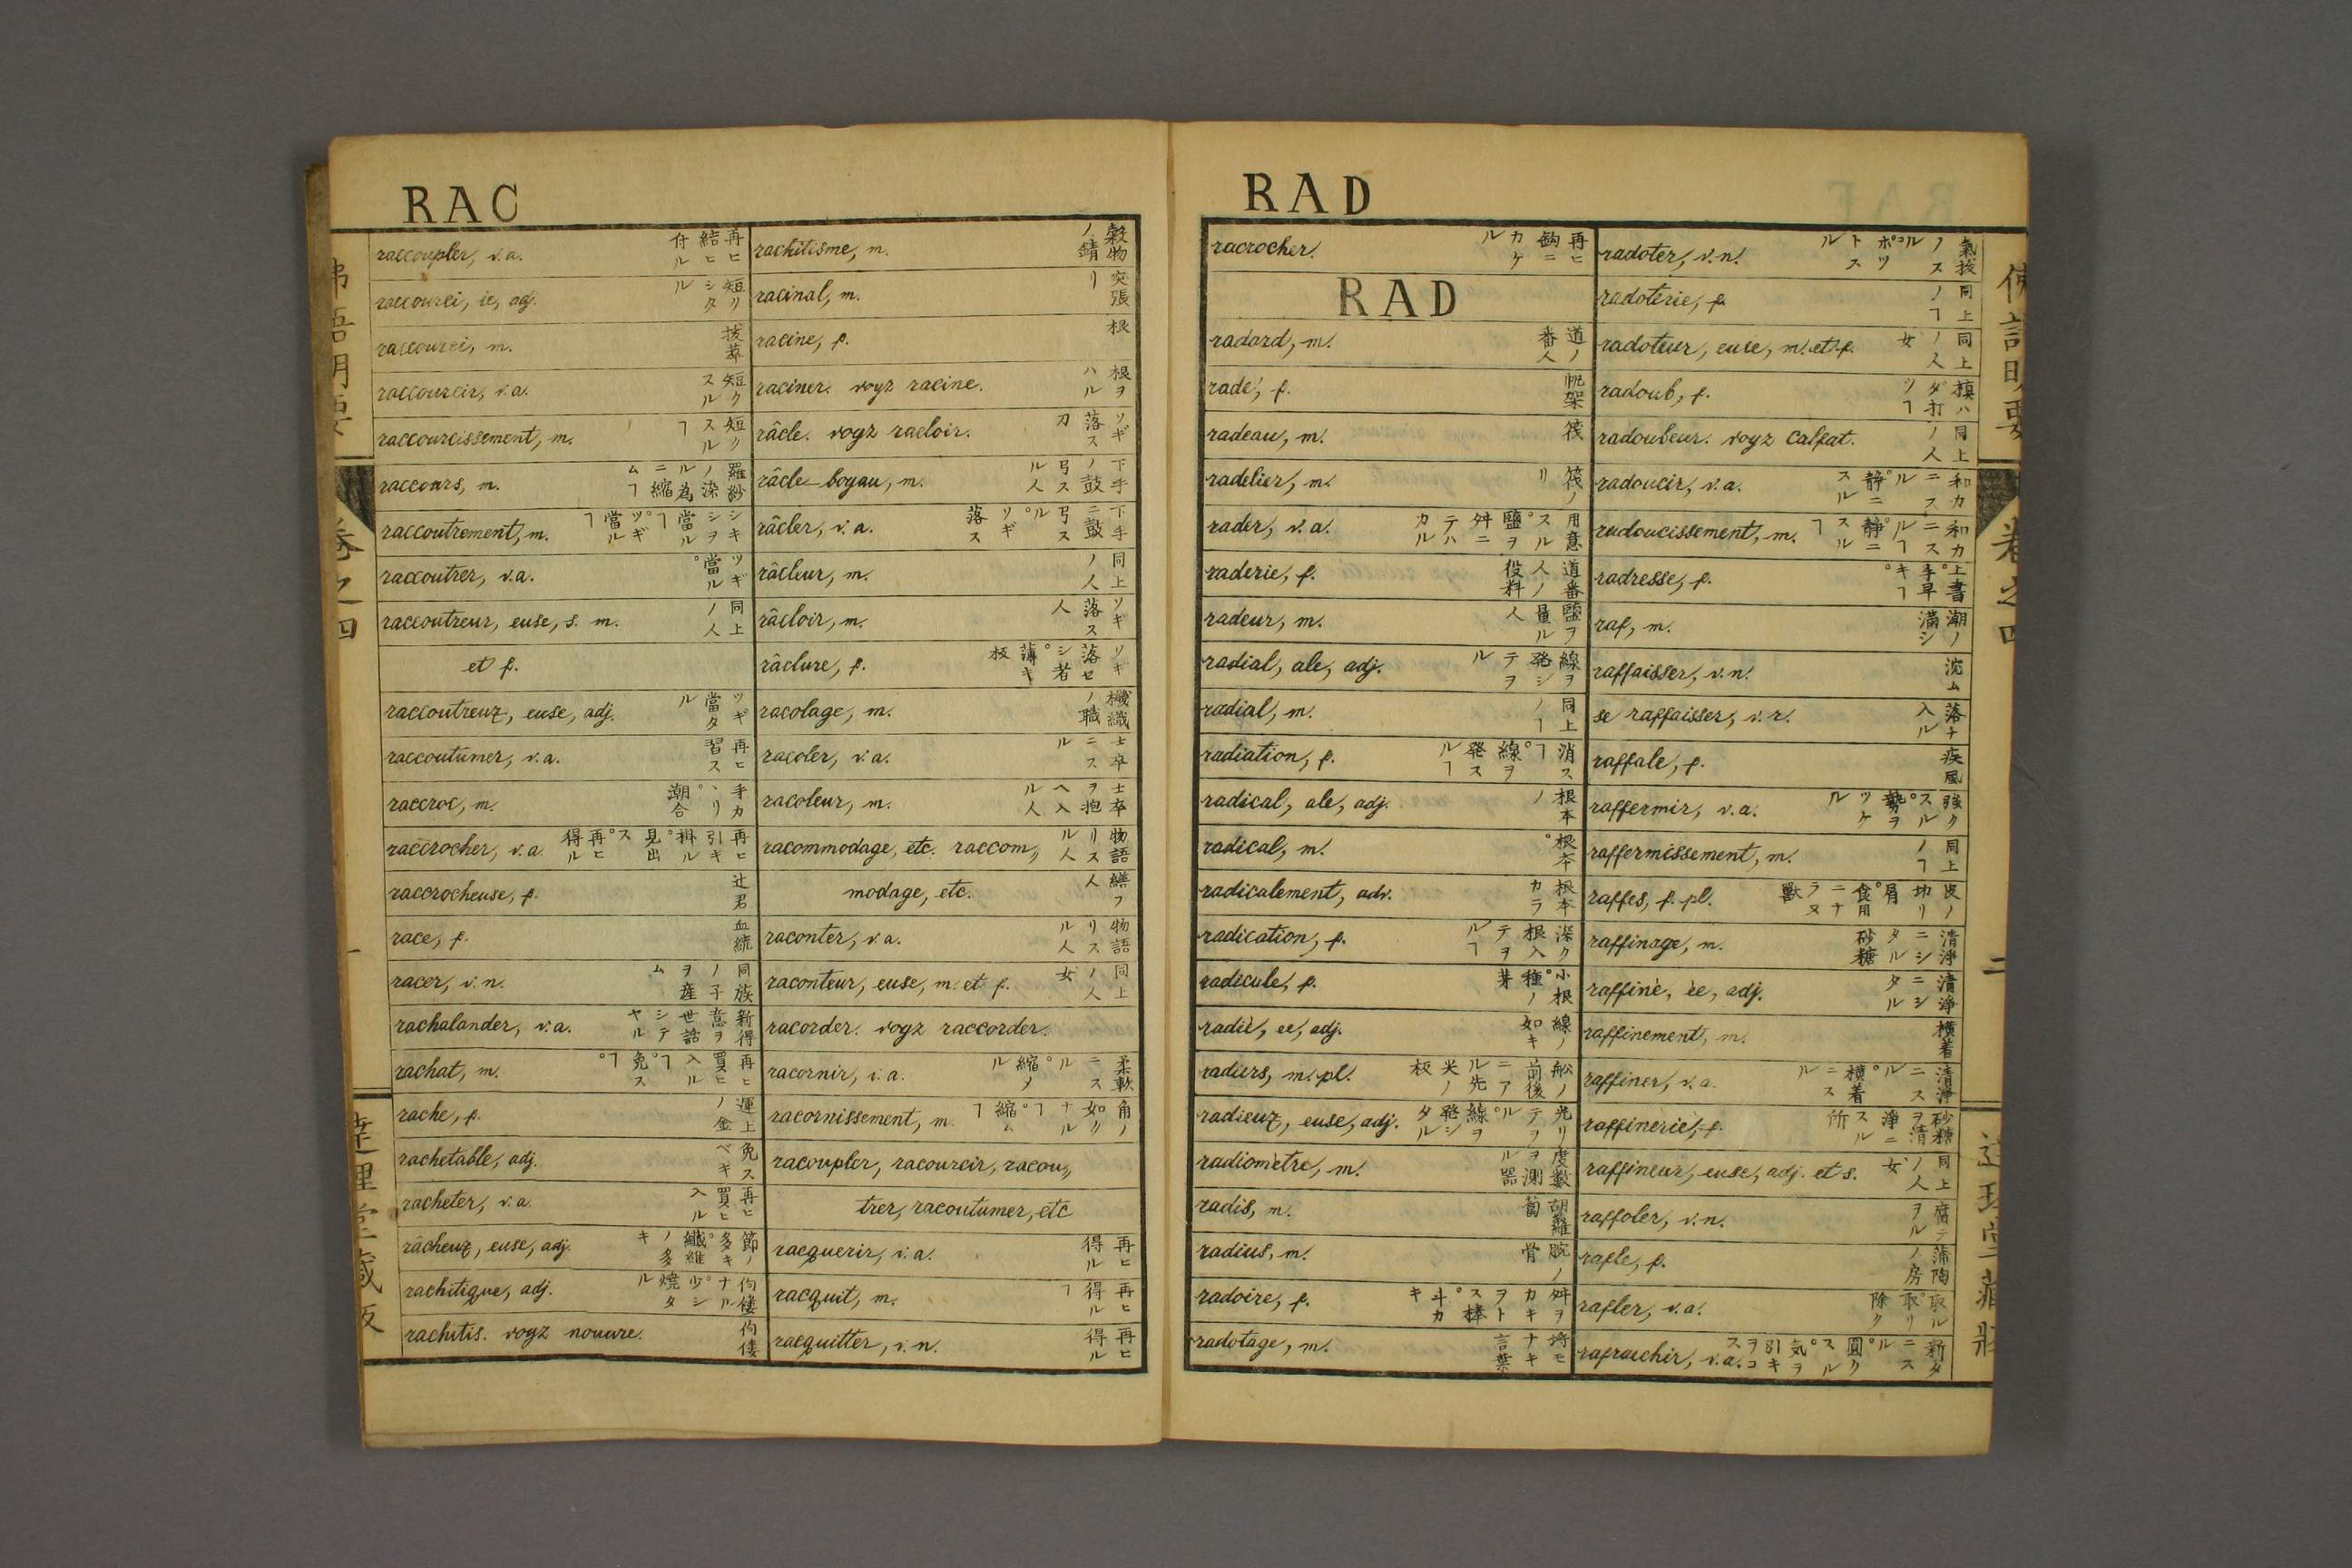 RAC
raccoupler, v.a. 再ヒ結ヒ付ル
raccourci, ie, adj. 短リシタル
raccourci, m. 抜萃
raccourcir, v.a. 短クスル
raccourcissement, m. 短クスルヿ
raccours, m. 羅紗ノ染ル為ニ縮ムヿ
raccoutrement, m.
raccoutrer, v.a. ツギ當ル。
raccoutreur, euse, s. m. 同上ノ人
et f.
raccoutreux, euse, adj. ツギ當タル
raccoutumer, v.a. 再ヒ習ス
raccroc, m.
raccrocher, v.a. 再ヒ引キ掛ル。見出ス。再ヒ得ル
raccrocheuse, f. 辻君
race, f. 血統
racer, v.n. 同族ノ子ヲ産ム
rachalander, v.a. 新得意ヲ世話シテヤル
rachat, m. 再ヒ買ヒ入ルヿ。免スヿ。
rache, f. 運上ノ金
rachetable, adj. 免スベキ
racheter, v.a. 再ヒ買ヒ入ル
racheux, euse, adj. 節ノ多キ。纖維ノ多キ
rachitique, adj. 佝僂ナル。少シ燒タル
rachitis. voyz nouure. 佝僂
rachitisme, m. 穀物ノ錆
racinal, m. 突張リ
racine, f. 根
raciner. voyz racine. 根ヲハル
râcle. voyz racloir. ソギ落ス刀
râcle-boyau, m. 下手ノ鼓弓スル人
râcler, v.a. 下手ニ鼓弓スル。ソギ落ス
râcleur, m. 同上ノ人
râcloir, m. ソギ落ス人
râclure, f. ソギ落セシ者。薄キ板
racolage, m. 機織ノ職
racoler, v.a. 士卒ニスル
racoleur, m. 士卒ヲ抱ヘ入ル人
racommodage, etc. raccom〃 物語リスル人
modage, etc. 繕フ人
raconter, v.a. 物語リスル人
raconteur, euse, m. et f. 同上ノ人 女
racorder. voyz raccorder.
racornir, v.a. 柔軟ニスル。縮メル
racornissement, m. 角ノ如クナルヿ。縮ムヿ
racoupler, racourcir, racou〃
trer, racoutumer, etc
racquerir, v.a. 再ヒ得ル
racquit, m. 再ヒ得ルヿ
racquitter, v.n. 再ヒ得ル
卷之四
一
RAD
racrocher. 再ヒ鈎ニカケル
RAD
radard, m. 道ノ番人
rade, f. 帆架
radeau, m. 筏
radelier, m. 筏ノリ
rader, v.a. 用意スル。鹽ヲ舛ニテハカル
raderie, f. 道番人ノ役料
radeur, m. 鹽ヲ量ル人
radial, ale, adj. 線ヲ発シテヲル
radial, m. 同上ノヿ
radiation, f. 消スヿ。線ヲ発スルヿ
radical, ale, adj. 根本ノ
radical, m. 根本。
radicalement, adv. 根本カラ
radication, f. 深ク根入テヲルヿ
radicule, f. 小根。種ノ芽
radié, ee, adj. 線ノ如キ
radiers, m. pl. 舩ノ前後ニアル尖先ノ板
radieux, euse, adj. 光リテヲル。線ヲ発シタル
radiomètre, m. 度数ヲ測ル器
radis, m. 胡蘿蔔
radius, m. 腕ノ骨
radoire, f. 舛ヲカキヲトス棒。斗カキ
radotage, m. 埒モナキ言葉
radoter, v.n.
radoterie, f. 同上ノヿ
radoteur, euse, m. et f. 同上ノ人 女
radoub, f. 槙ハダ打ツヿ
radoubeur. voyz calfat. 同上ノ人
radoucir, v.a. 和カニスル。静ニスル
radoucissement, m. 和カニスルヿ。静ニスルヿ
radresse, f.
raf, m. 潮ノ滿シ
raffaisser, v.n. 沈ム
se raffaisser, v.r. 落チ入ル
raffale, f. 疾風
raffermir, v.a. 強クスル。勢ヲツケル
raffermissement, m. 同上ノヿ
raffes, f. pl. 皮ノ切リ屑。食用ニナラヌ獸
raffinage, m. 清淨ニシタル砂糖
raffiné, ée, adj. 清淨ニシタル
raffinement, m. 横着
raffiner, v.a. 清淨ニスル。横着ニスル
raffinerie, f. 砂糖ヲ清淨ニスル所
raffineur, euse, adj. et s. 同上ノ人 女
raffoler, v.n. 腐テヲル
rafle, f. 蒲陶ノ房
rafler, v.a. 取ル。取リ除ク
rafraichir, v.a. 新タニスル。圓クスル。気ヲ引キヲコス
卷之四
二